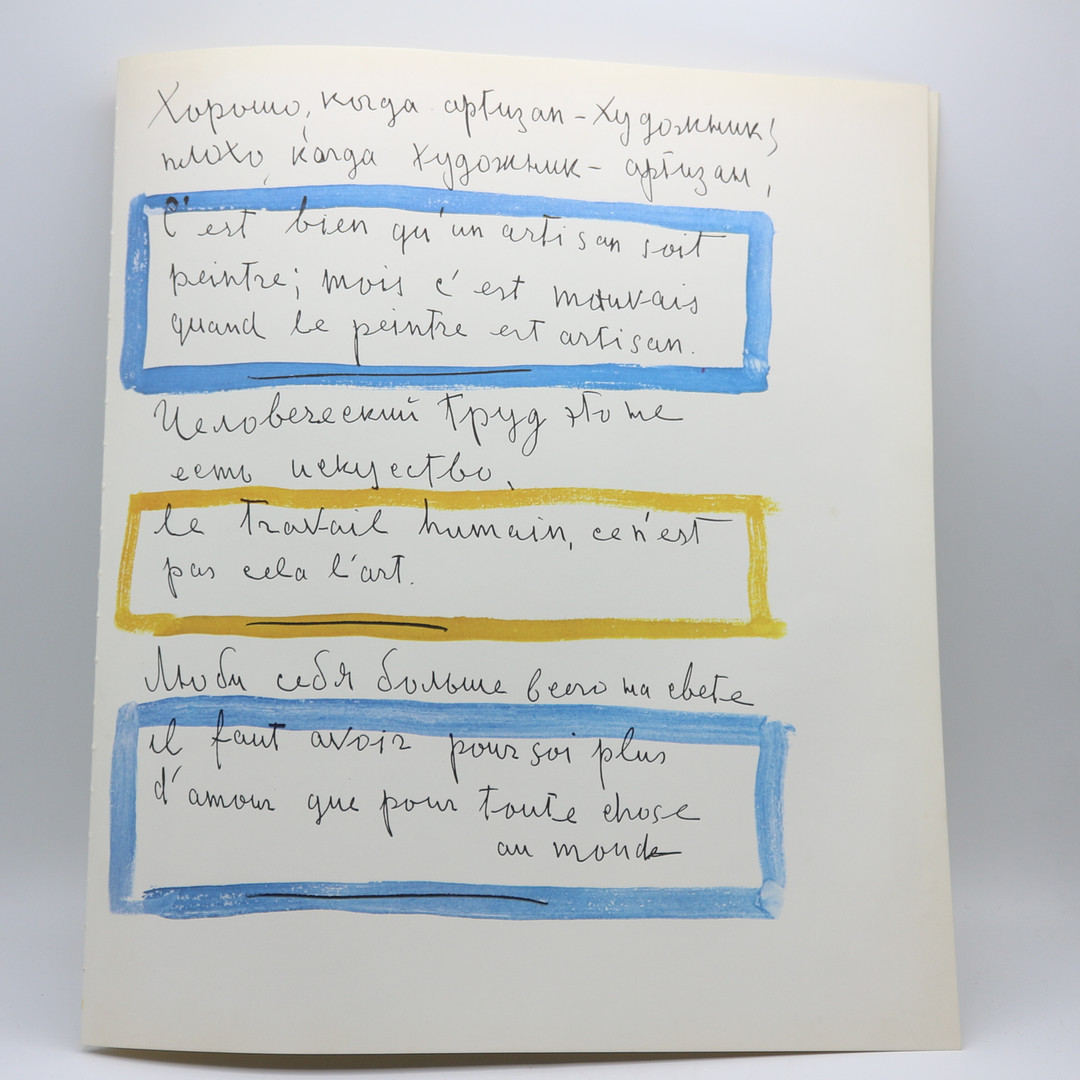 Хорошо, когда артизан – художник!
плохо, когда художник – артизан,
C'est bien qu'un artisan soit
peintre; mois c'est mauvais
quand le peintre est artisan.
Человеческий труд это не
есть искуество,
le travail humain, ce n'est
pas cela l'art.
Люби себя больше всего на свете
il faut avoir pour soi plus
d'amour que pour toute chose
au monde